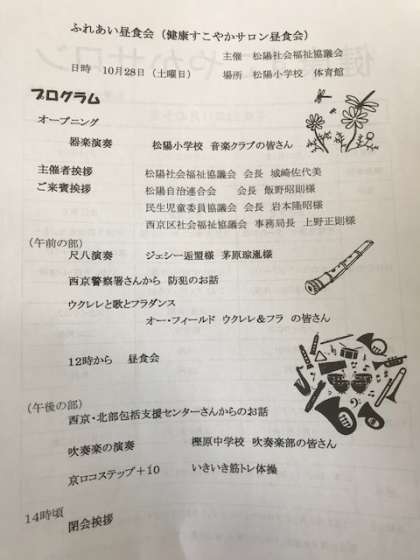 ふれあい昼食会（健康すこやかサロン昼食会）
主催 松陽社会福祉協議会
日時 10月28日（土曜日） 場所 松陽小学校 体育館
プログラム
オープニング
器楽演奏 松陽小学校 音楽クラブの皆さん
主催者挨拶 松陽社会福祉協議会 会長 城崎佐代美
ご来賓挨拶 松陽自治連合会 会長 飯野昭則様
民生児童委員協議会 会長 岩本隆昭様
西京区社会福祉協議会 事務局長 上野正則様
（午前の部）
尺八演奏 ジェシー逅盟様 茅原琮風様
西京警察署さんから 防犯のお話
ウクレレと歌とフラダンス
オー・フィールド ウクレレ＆フラ の皆さん
12時から 昼食会
（午後の部）
西京・北部包括支援センターさんからのお話
吹奏楽の演奏 樫原中学校 吹奏楽部の皆さん
京ロコステップ＋10 いきいき筋トレ体操
14時頃
閉会挨拶